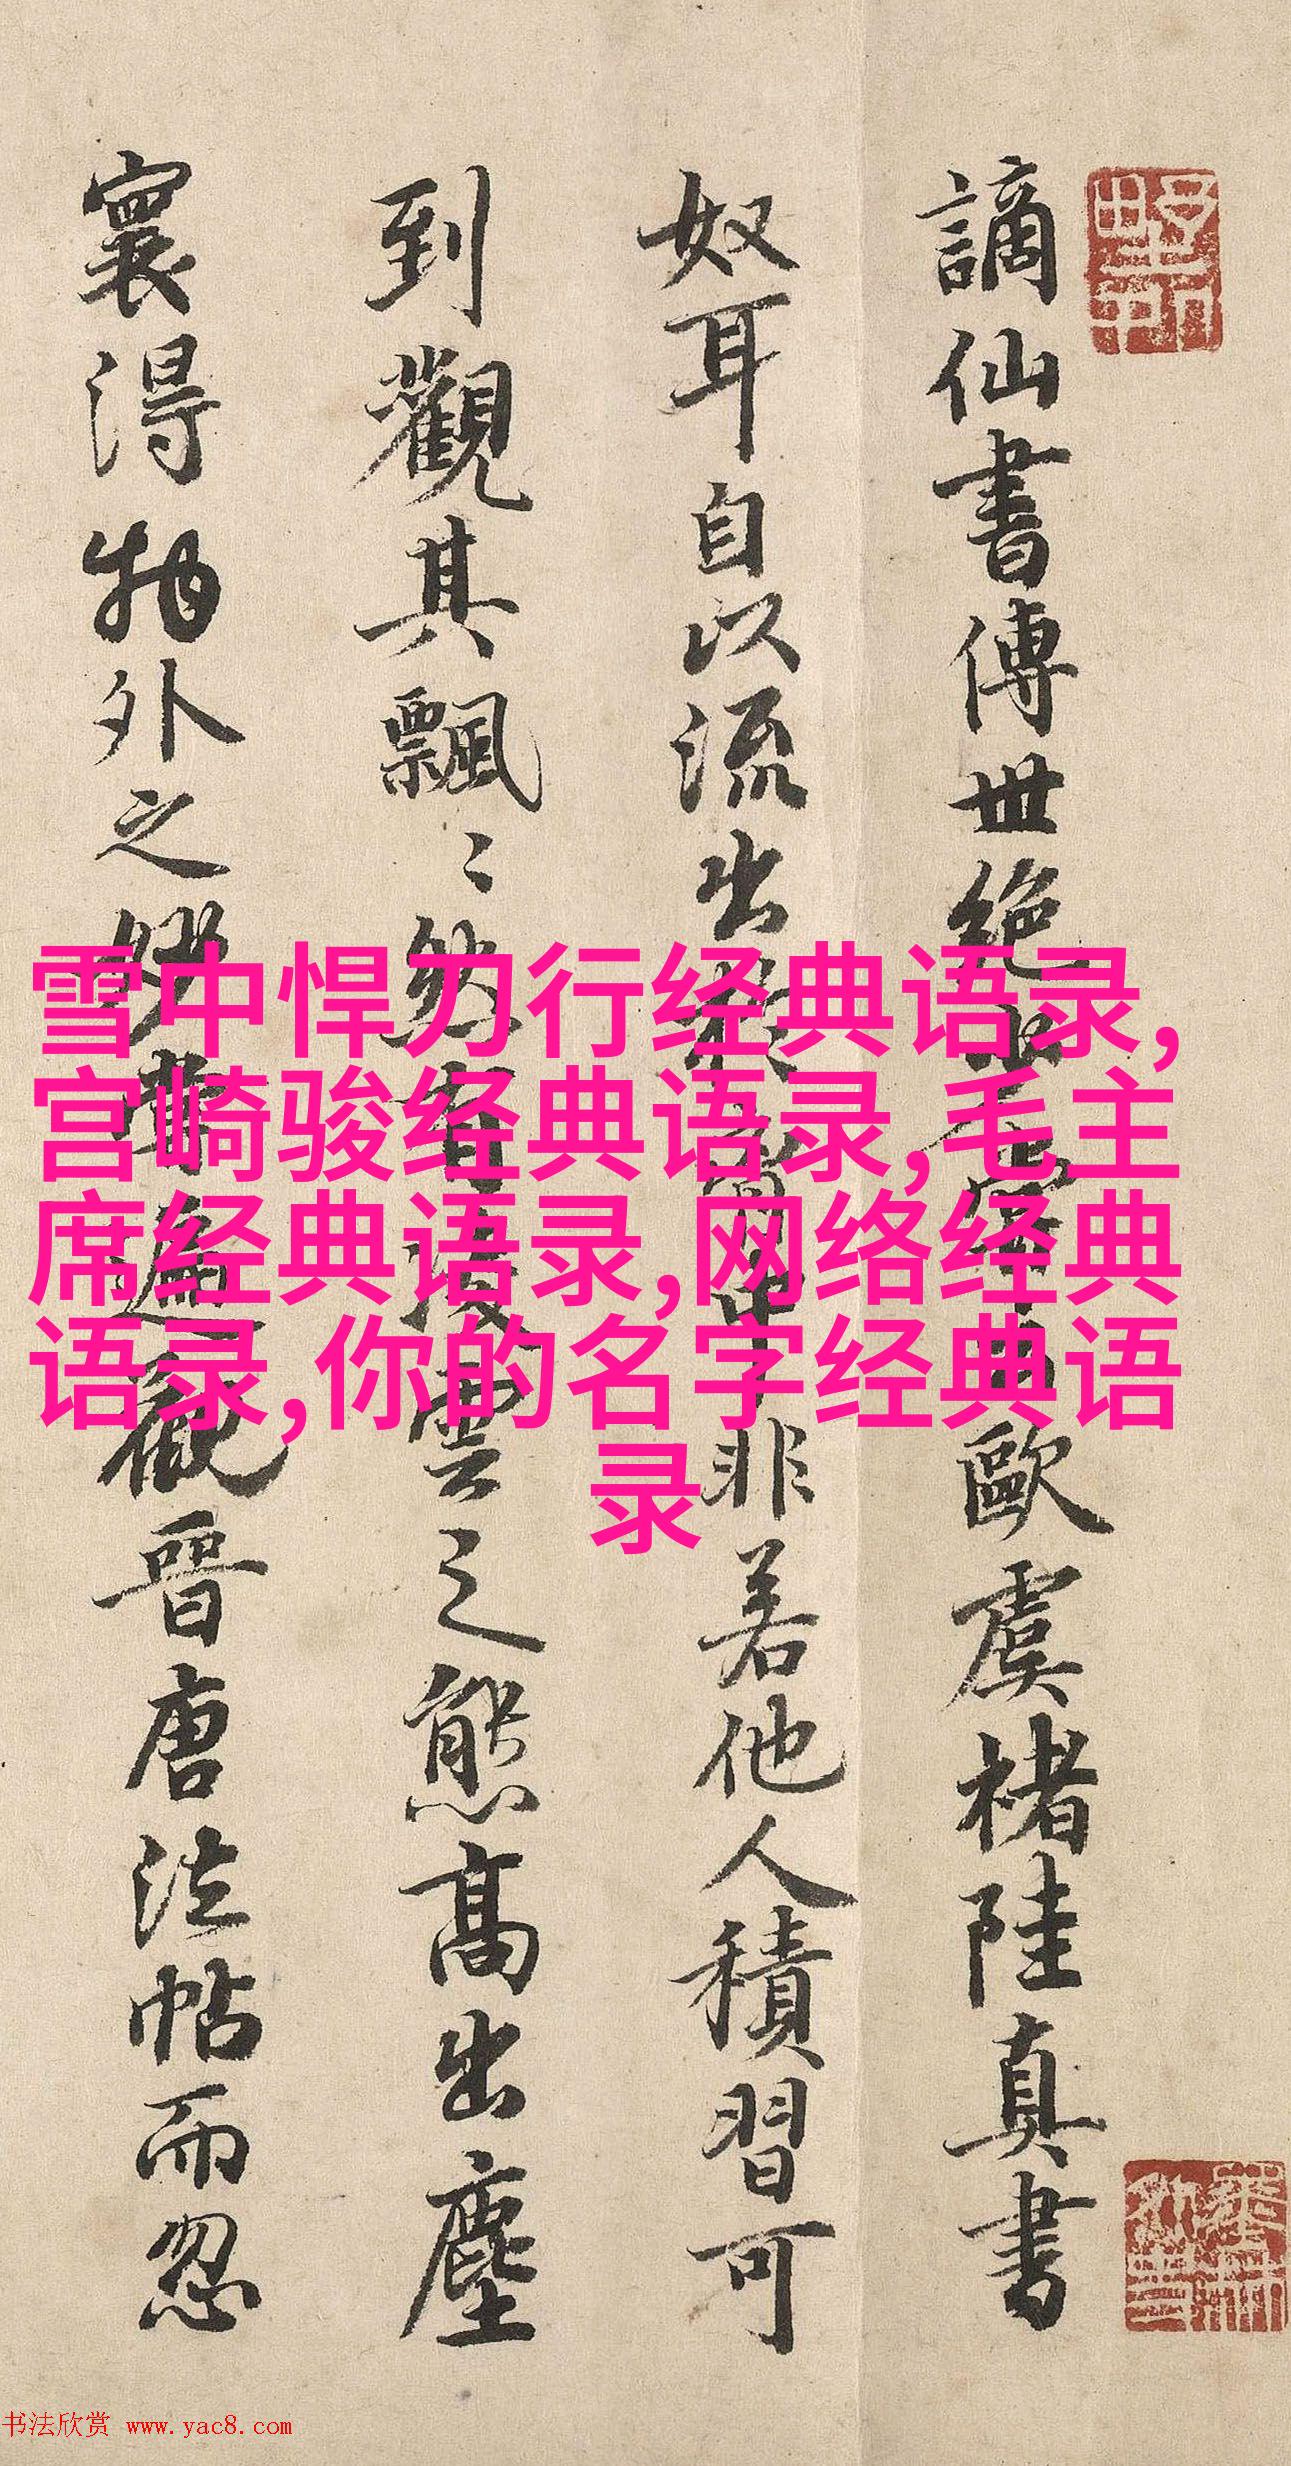 謫仙書傳世絕
歐虞褚陸真書
奴耳自以流出
非若他人積習可
到觀其飄〻然有
雲之態高出塵
寰得物外之
遍觀晉唐法帖而忽
雪中悍刀行经典语录,
宫崎骏经典语录,毛主
席经典语录,网络经典
语录,你的名字经典语
录
书法欣赏 www.yac8.com